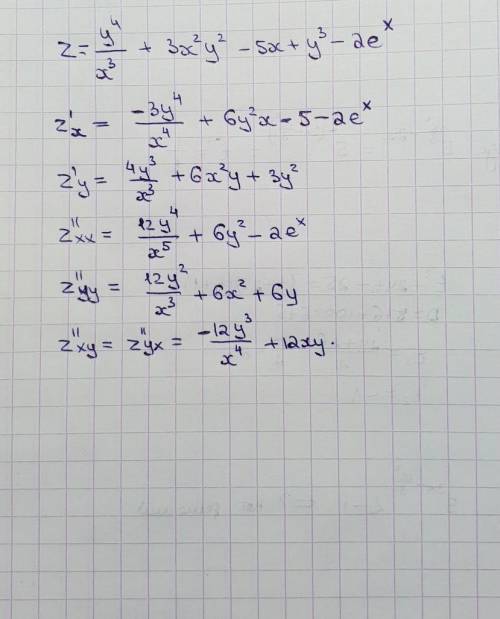 z = y⁴/x³ + 3x²y² - 5x + y³ - 2eˣ
z'x = -3y⁴/x⁴ + 6y²x - 5 - 2eˣ
z'y = 4y³/x³ + 6x²y + 3y²
z''xx = 12y⁴/x⁵ + 6y² - 2eˣ
z''yy = 12y²/x³ + 6x² + 6y
z''xy = z''yx = -12y³/x⁴ + 12xy.